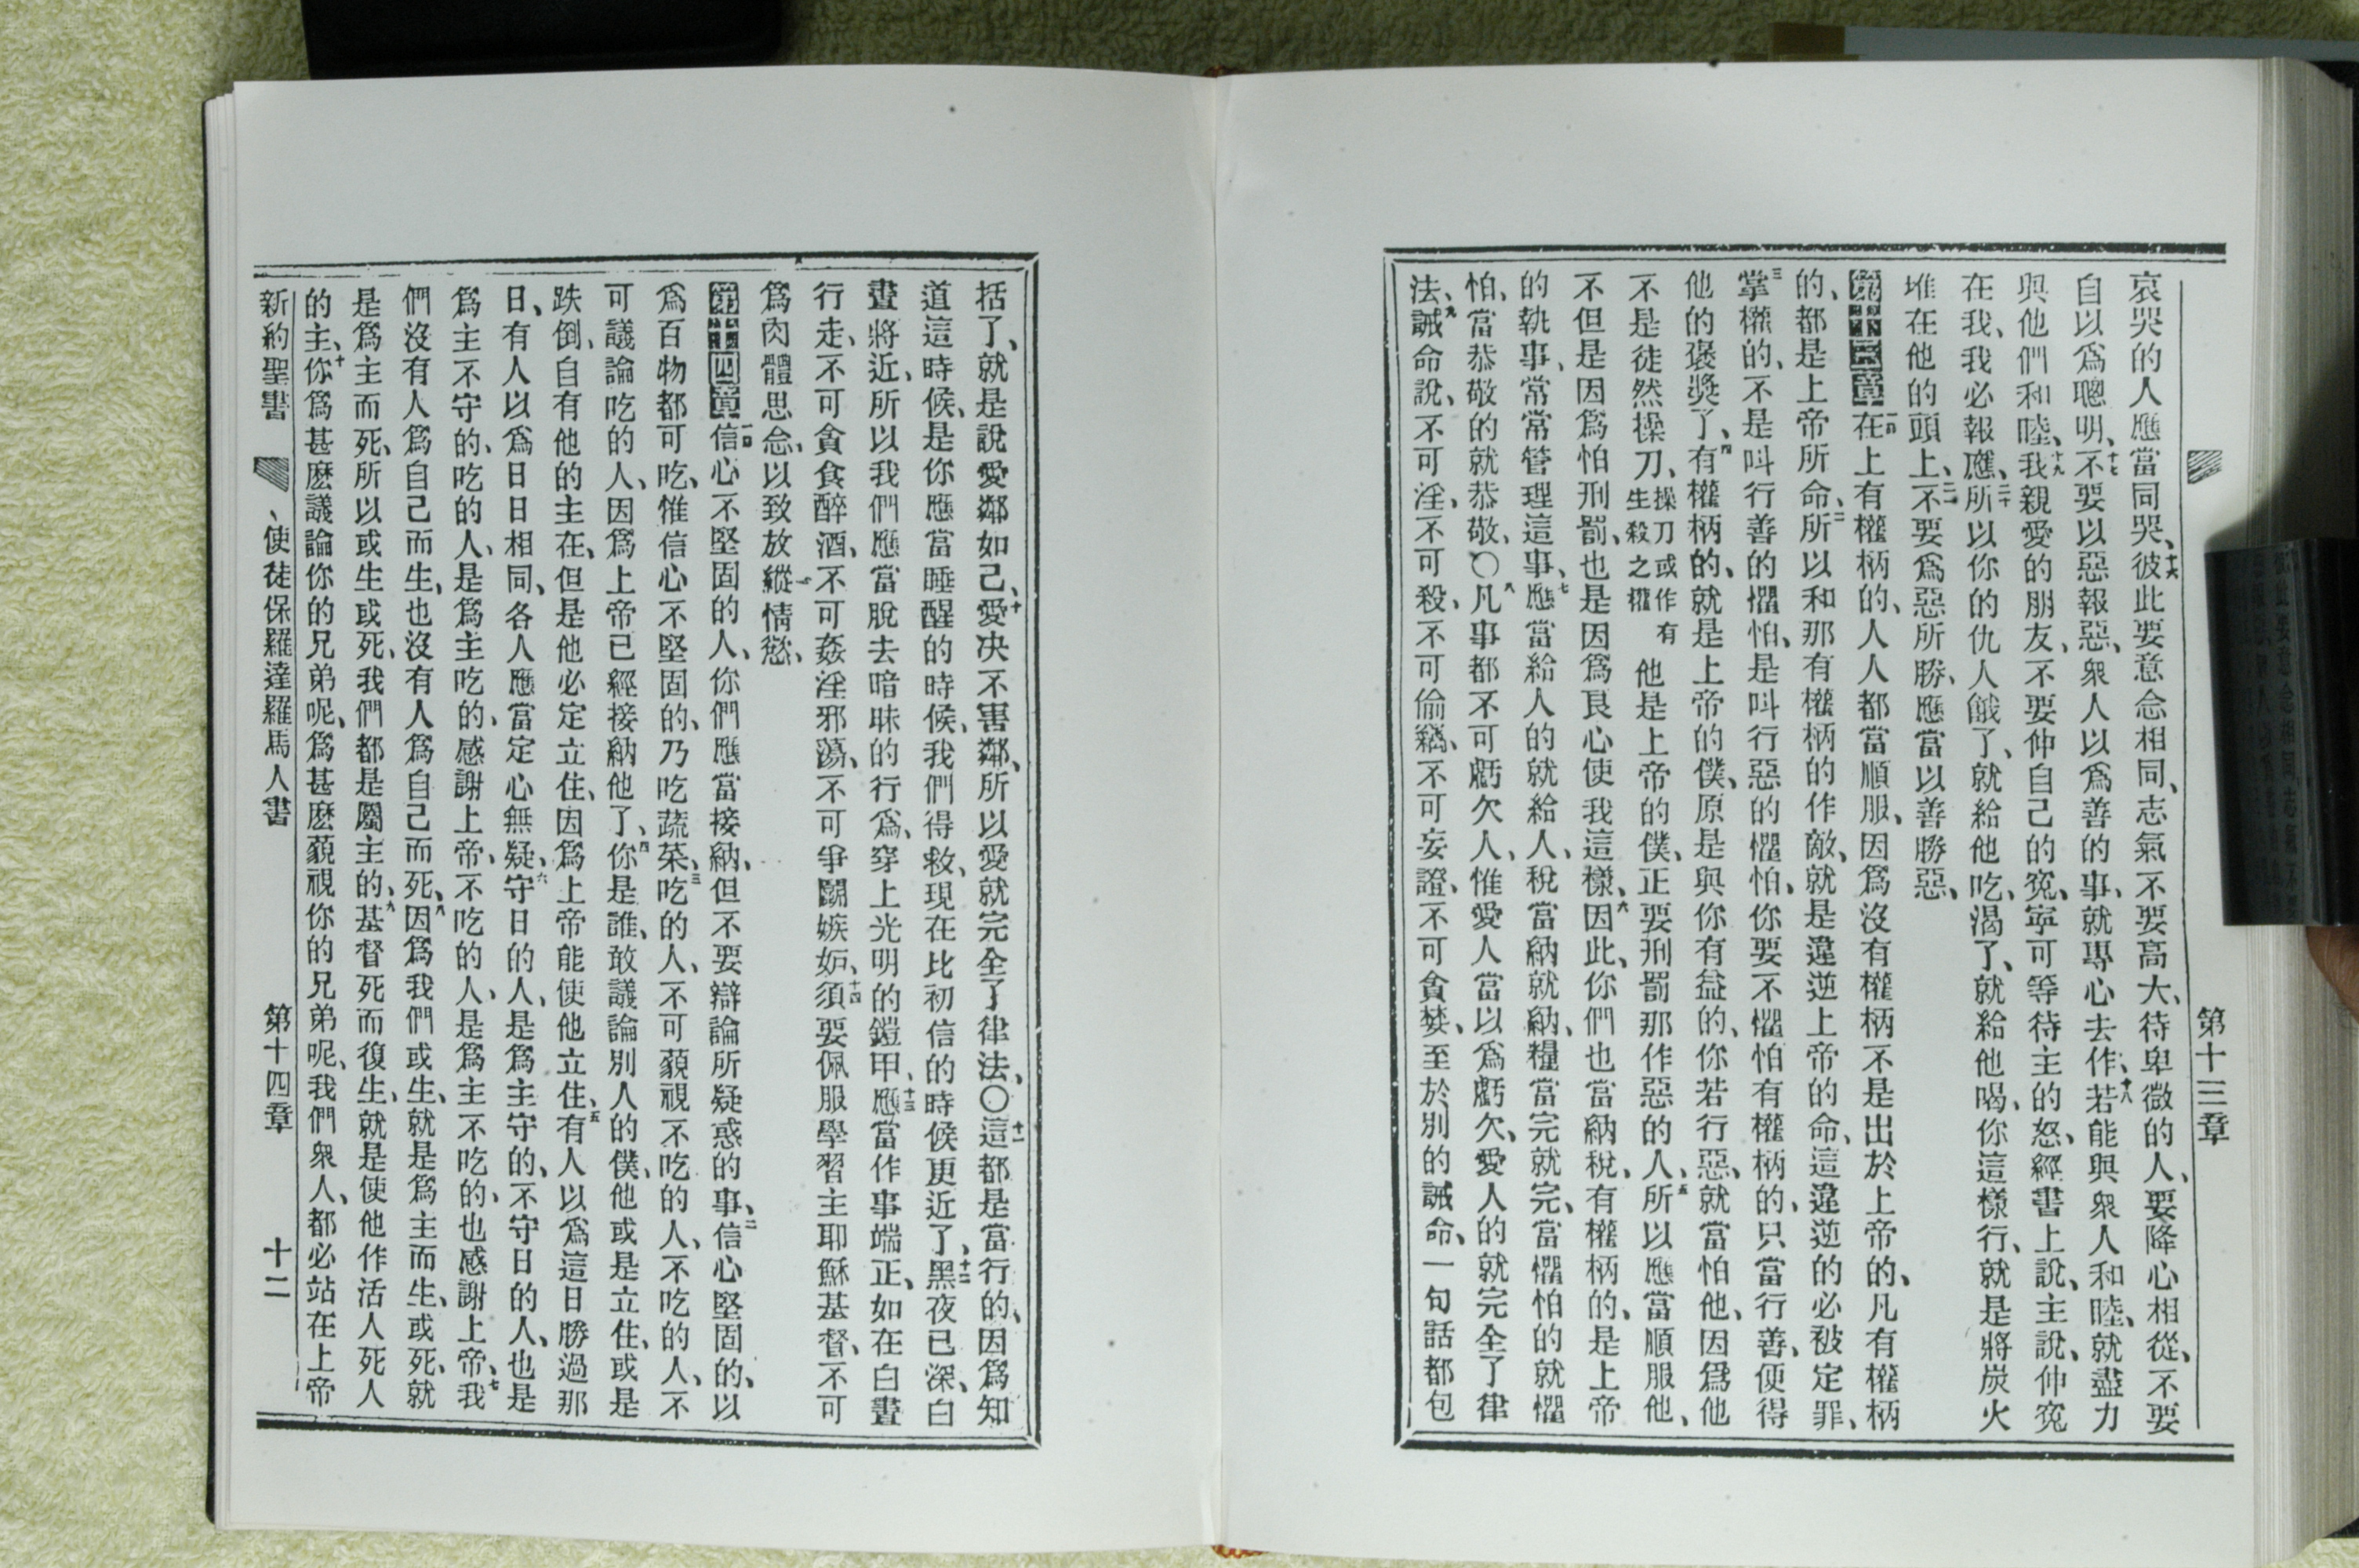 第十三章
哀哭的人應當同哭、十六彼此要意念相同、志氣不要高大、待卑微的人、要降心相從、不要
自以爲聰明、十七不要以惡報惡、衆人以爲善的事、就專心去作、十八若能與衆人和睦、就盡力
與他們和睦、十九我親愛的朋友、不要伸自己的寃、寧可等待主的怒、經書上說、主說、伸寃
在我、我必報應、二十所以你的仇人餓了、就給他吃、渴了、就給他喝、你這樣行、就是將炭火
堆在他的頭上、二一不要爲惡所勝、應當以善勝惡、
第十三章一在上有權柄的、人人都當順服、因爲沒有權柄不是出於上帝的、凡有權柄
的、都是上帝所命、二所以和那有權柄的作敵、就是違逆上帝的命、這違逆的必被定罪、
三掌權的、不是叫行善的懼怕、是叫行惡的懼怕、你要不懼怕有權柄的、只當行善、便得
他的褒獎了、四有權柄的、就是上帝的僕、原是與你有益的、你若行惡、就當怕他、因爲他
不是徒然操刀、操刀或作有生殺之權他是上帝的僕、正要刑罰那作惡的人、五所以應當順服他、
不但是因爲怕刑罰、也是因爲良心使我這樣、六因此、你們也當納稅、有權柄的、是上帝
的執事、常常管理這事、七應當給人的就給人、稅當納就納、糧當完就完、當懼怕的就懼
怕、當恭敬的就恭敬、〇八凡事都不可虧欠人、惟愛人當以爲虧欠、愛人的就完全了律
法、九誡命說、不可淫、不可殺、不可偷竊、不可妄證、不可貪婪、至於別的誡命、一句話都包
括了、就是說愛鄰如己、十愛決不害鄰、所以愛就完全了律法、〇十一這都是當行的、因爲知
道這時候、是你應當睡醒的時候、我們得救、現在比初信的時候更近了、十二黑夜已深、白
晝將近、所以我們應當脫去暗昧的行爲、穿上光明的鎧甲、十三應當作事端正、如在白晝
行走、不可貪食醉酒、不可姦淫邪蕩、不可爭鬭嫉妒、十四須要佩服學習主耶穌基督、不可
爲肉體思念、以致放縱情慾、
第十四章一信心不堅固的人、你們應當接納、但不要辯論所疑惑的事、二信心堅固的、以
爲百物都可吃、惟信心不堅固的、乃吃蔬菜、三吃的人、不可藐視不吃的人、不吃的人、不
可議論吃的人、因爲上帝已經接納他了、四你是誰、敢議論別人的僕、他或是立住、或是
跌倒、自有他的主在、但是他必定立住、因爲上帝能使他立住、五有人以爲這日勝過那
日、有人以爲日日相同、各人應當定心無疑、六守日的人、是爲主守的、不守日的人、也是
爲主不守的、吃的人、是爲主吃的、感謝上帝、不吃的人、是爲主不吃的、也感謝上帝、七我
們沒有人爲自己而生、也沒有人爲自己而死、八因爲我們或生、就是爲主而生、或死、就
是爲主而死、所以或生或死、我們都是屬主的、九基督死而復生、就是使他作活人死人
的主、十你爲甚麽議論你的兄弟呢、爲甚麽藐視你的兄弟呢、我們衆人、都必站在上帝
新約聖書 使徒保羅達羅馬人書 第十四章 十二